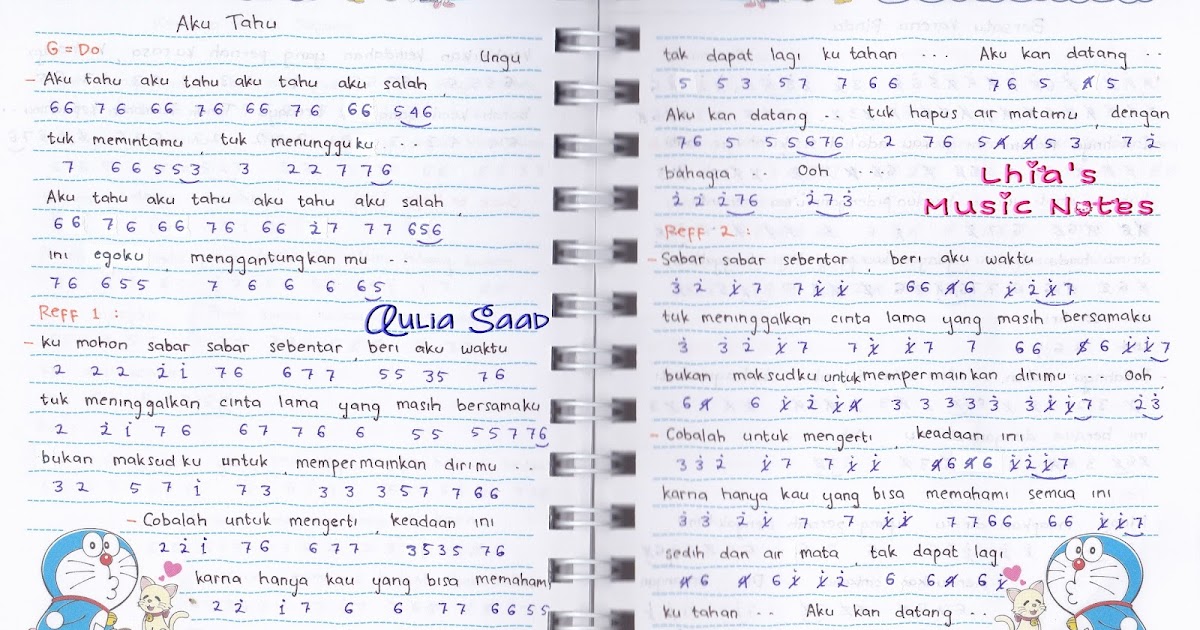 Aku Tahu
G = Do
Ungu
- Aku tahu aku tahu aku tahu aku salah,
66 76 66 76 66 76 66 546
tuk memintamu, tuk menungguku ...
7 66553 3 22776
Aku tahu aku tahu aku tahu aku salah,
66 76 66 76 66 2̇7 77 656
ini egoku, menggantungkan mu ...
76 655 7 6 6 6 65
Reff 1 :
Aulia Saad
- ku mohon sabar sabar sebentar, beri aku waktu
2 22 2̇1̇ 76 677 55 35 76
tuk meninggalkan cinta lama yang masih bersamaku
2 2̇1̇76 67 76 6 55 55776
bukan maksudku untuk, mempermainkan dirimu ..
32 571̇ 73 33357 766
- Cobalah untuk mengerti, keadaan ini
22̇1̇ 76 677 3535 76
karna hanya kau yang bisa memahami
22̇ 1̇7 6 6 77 6655
tak dapat lagi ku tahan ... Aku kan datang ..
5 53 57 766 76 5 4̸5
Aku kan datang .. tuk hapus air matamu, dengan
76 5 55676 2 76 54̸ 4̸53 72̇
bahagia .. Ooh ...
2̇2̇2̇76 2̇73̇
Lhia's
Music Notes
Reff 2 :
- Sabar sabar sebentar, beri aku waktu
3̇2̇ 1̸̇7 71̸̇1̸̇ 66 4̸6 1̸̇2̇1̸̇7
tuk meninggalkan cinta lama yang masih bersamaku
3̇ 3̇2̇1̸̇7 71̸̇ 1̸̇7 7 66 5̸61̸̇1̸̇7
bukan maksudku untuk mempermainkan dirimu .. Ooh,
64̸ 61̸̇2̇1̸̇4̸ 33333̇ 3̇1̸̇1̸̇7 2̇3̇
- Cobalah untuk mengerti keadaan ini
33̇2̇ 1̸̇7 71̸̇1̸̇ 4̸64̸6 1̸̇2̇1̸̇7
karna hanya kau yang bisa memahami semua ini
3̇3̇ 2̇1̸̇ 7 7 1̸̇1̸̇ 7766 66 1̸̇1̸̇7
sedih dan air mata, tak dapat lagi
4̸6 4̸ 61̸̇ 1̸̇2̇ 6 64̸ 61̸̇
ku tahan .. Aku kan datang ..